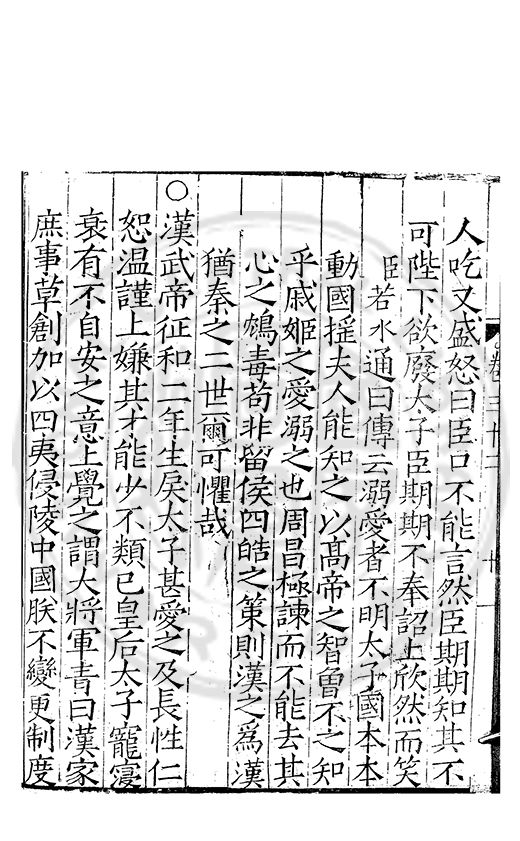 人吃又盛怒曰臣口不能言然臣期期知其不
可陛下欲廢太子臣期期不奉詔上欣然而笑
臣若水通曰傳云溺愛者不明太子國本本
動國搖夫人能知之以高帝之智曾不之知
乎戚姬之愛溺之也周昌極諫而不能去其
心之鴆毒苟非留侯四皓之策則漢之爲漢
猶秦之二世爾可懼哉
○漢武帝征和二年生戾太子甚愛之及長性仁
恕温謹上嫌其才能少不類已皇后太子寵寖
衰有不自安之意上覺之謂大將軍青曰漢家
庶事草創加以四夷侵陵中國朕不變更制度